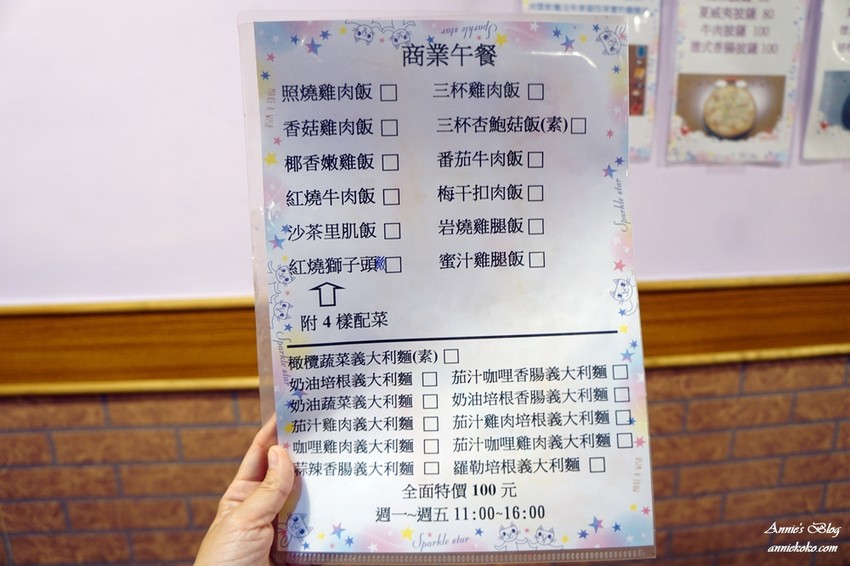 商業午餐
照燒雞肉飯 □ 三杯雞肉飯 □
香菇雞肉飯 □ 三杯杏鮑菇飯(素) □
椰香嫩雞飯 □ 番茄牛肉飯 □
紅燒牛肉飯 □ 梅干扣肉飯 □
沙茶里肌飯 □ 岩燒雞腿飯 □
紅燒獅子頭飯 □ 蜜汁雞腿飯 □
附 4 樣配菜
橄欖蔬菜義大利麵(素) □
奶油培根義大利麵 □ 茄汁咖哩香腸義大利麵 □
奶油蔬菜義大利麵 □ 奶油培根香腸義大利麵 □
茄汁雞肉義大利麵 □ 茄汁雞肉培根義大利麵 □
咖哩雞肉義大利麵 □ 茄汁咖哩雞肉義大利麵 □
蒜辣香腸義大利麵 □ 羅勒培根義大利麵 □
全面特價 100 元
週一~週五 11:00~16:00
Sparkle star
Sparkle star
Sparkle star
Sparkle star
夏威夷披薩 80
牛肉披薩 100
德式香腸披薩 100
Annie's Blog
anniekoko.com